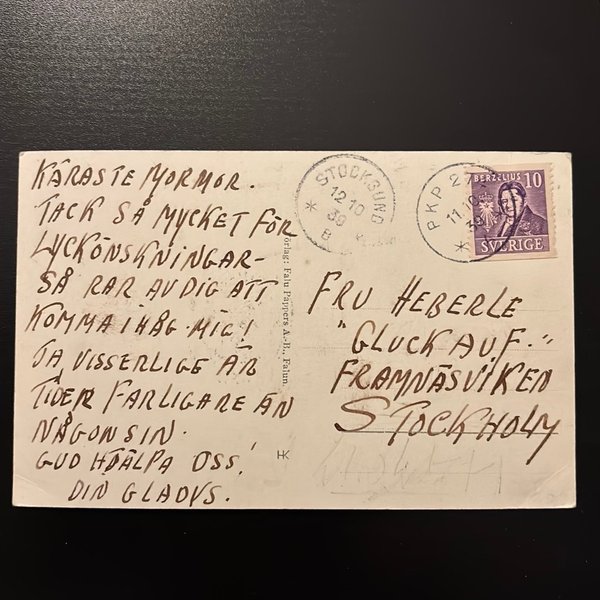 KÄRASTE MORMOR.
TACK SÅ MYCKET FÖR
LYCKÖNSKNINGAR-
SÅ RAR AV DIG ATT
KOMMA IHÅG MIG!
JA, VISSERLIGE ÄR
TIDEN FARLIGARE ÄN
NÅGONSIN.
GUD HJÄLPA OSS!
DIN GLADYS.
Förlag: Falu Pappers A.-B., Falun.
HK
STOCKSUND
12 10
39
B
PKP 27
11.10
39
BERZELIUS 10
SVERIGE
FRU HEBERLE
"GLUCK AUF."
FRAMNÄSVIKEN
STOCKHOLM